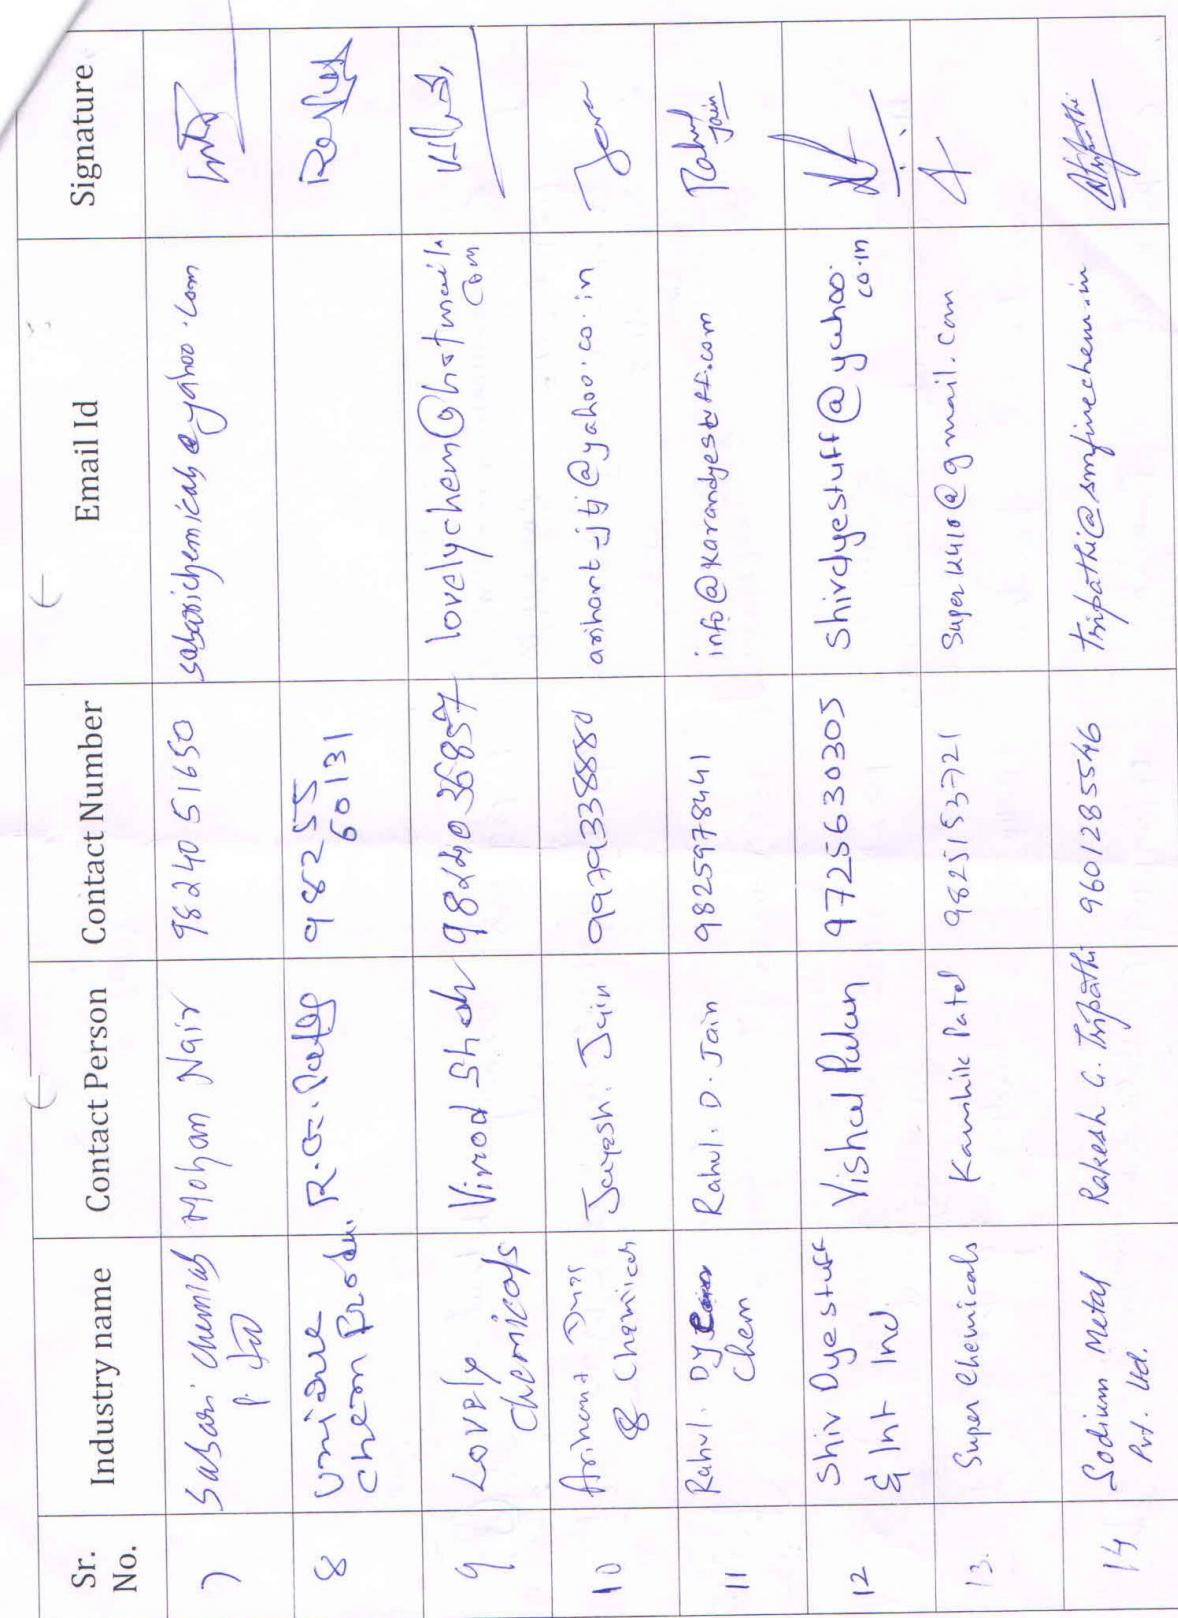 Sr. No. Industry name Contact Person Contact Number Email Id Signature
7 Sabari Chemicals P. Ltd Mohan Nair 9824051650 sabarichemicals@yahoo.com
8 Unique Chem Produ. R.G. 98255 60131
9 Lovely Chemicals Vinod Shah lovelychem@hotmail.com
10 Arihant Dyes & Chemicals Jayesh. Jain 9979338880 arihant_jtj@yahoo.co.in
11 Rahul. Dye Chem Rahul. D. Jain 9825978441 info@karandyestuff.com Rahul Jain
12 Shiv Dyestuff & Int Ind Vishal 9725630305 shivdyestuff@yahoo.co.in
13. Super Chemicals Kaushik Patel 9825153721 Super4410@gmail.com
14 Sodium Metal Pvt. Ltd. Rakesh G. Tripathi 9601285546 tripathi@smfinechem.in Tripathi